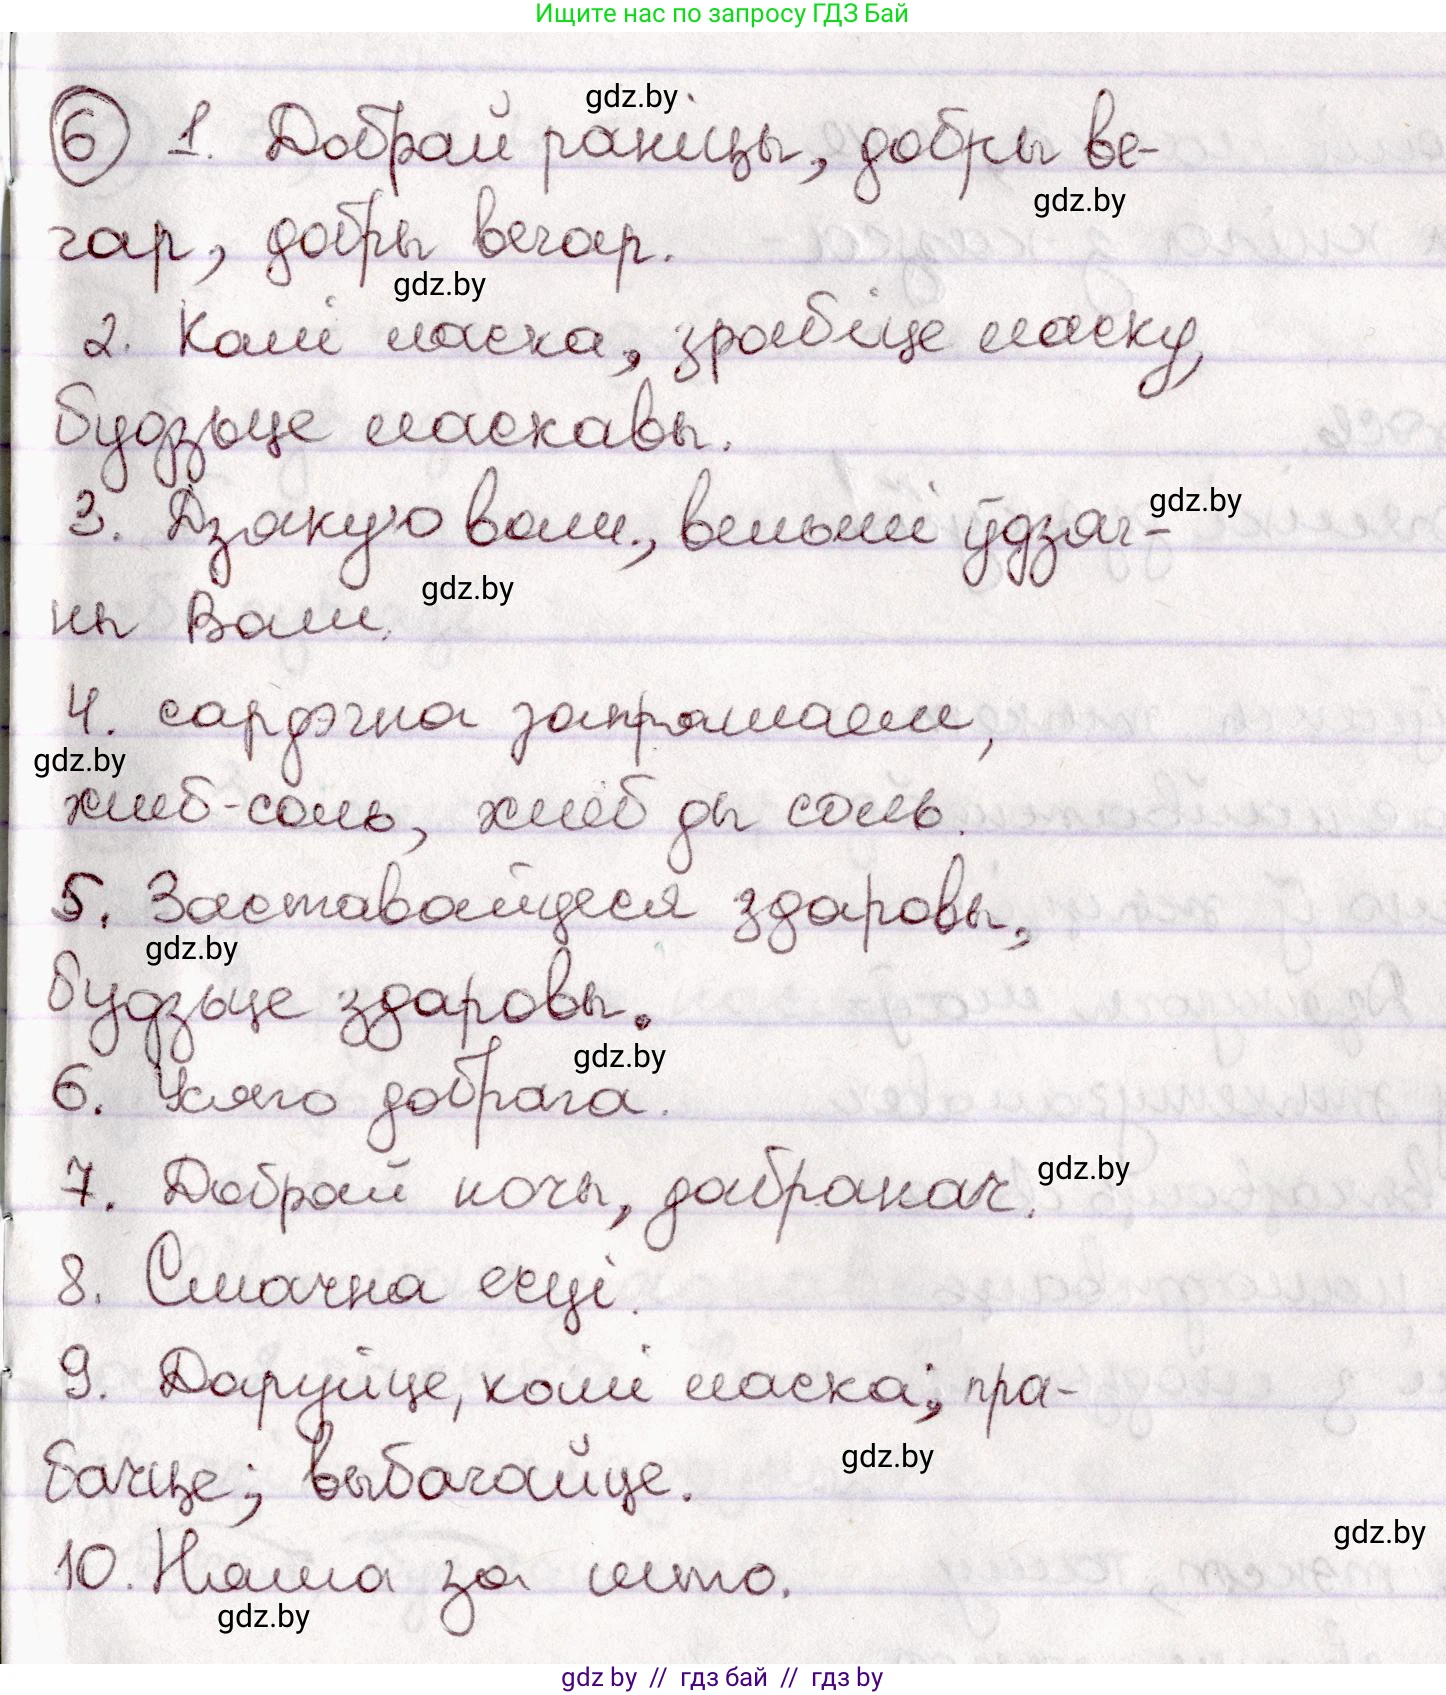 Ищите нас по запросу ГДЗ Бай
gdz.by
6 1. Добрай раніцы, добры ве-
gdz.by
чар, добры вечар.
gdz.by
2. Калі ласка, зрабіце ласку,
будзьце ласкавы.
gdz.by
3. Дзякую вам., вельмі ўдзяч-
gdz.by
ны Вам.
4. сардэчна запрашаем,
gdz.by
хлеб-соль, хлеб ды соль.
5. Заставайцеся здаровы,
gdz.by
будзьце здаровы.
gdz.by
6. Усяго добрага.
gdz.by
7. Добрай ночы, дабранач.
8. Смачна есці.
9. Даруйце, калі ласка; пра-
gdz.by
бачце; выбачайце.
gdz.by
10. Няма за што.
gdz.by
gdz by // гдз бай // гдз by